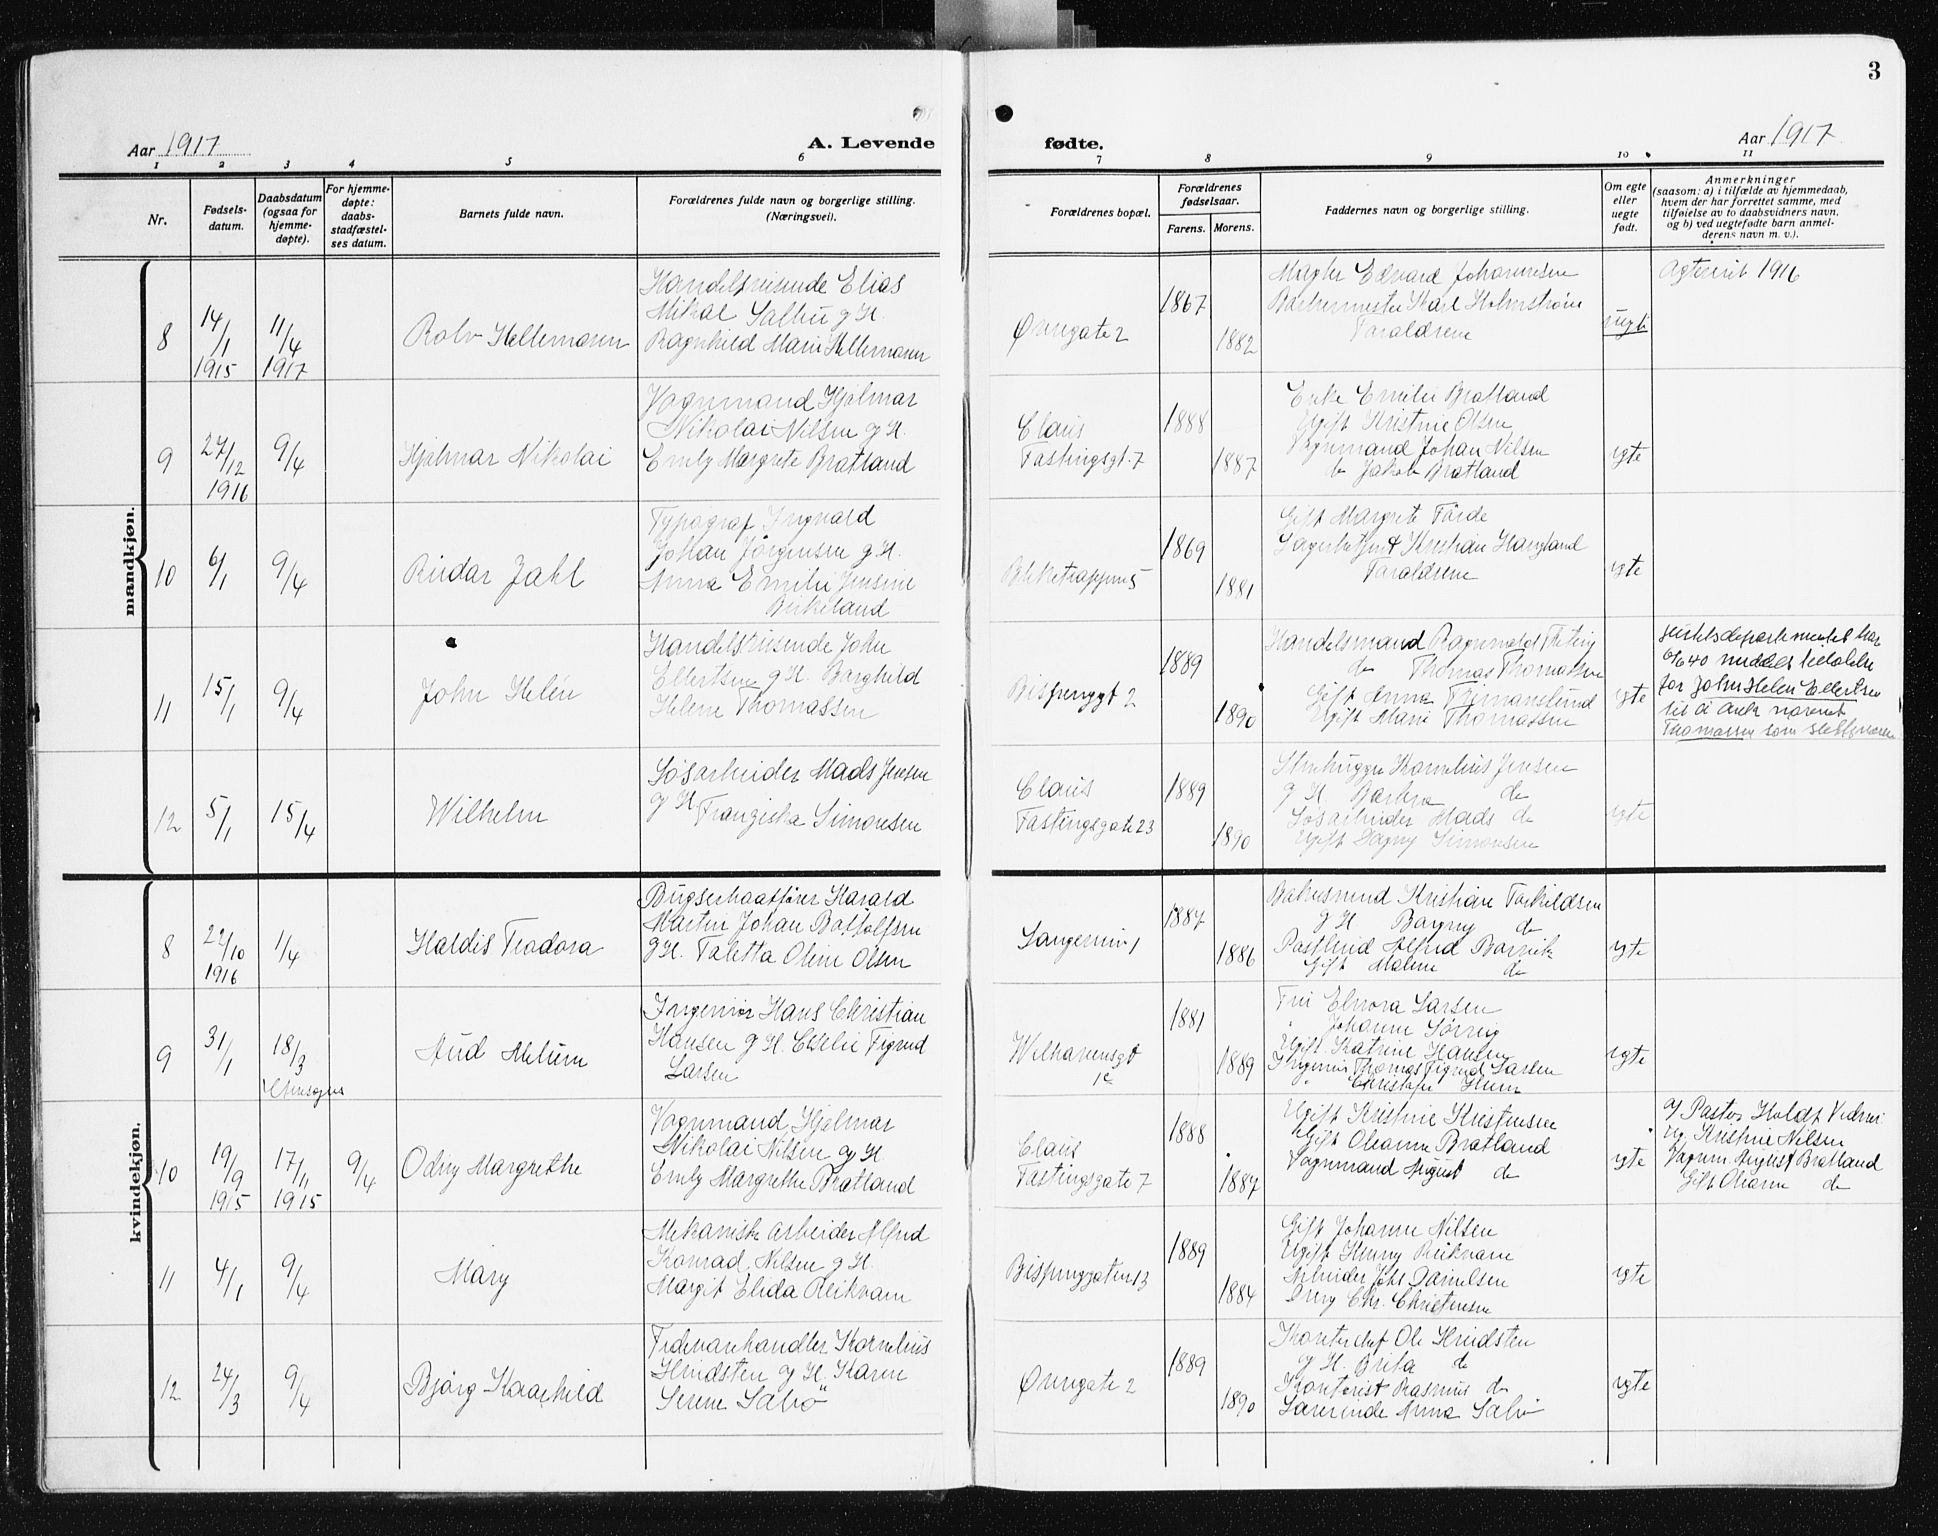 3
Aar 1917
A. Levende
fødte.
Aar 1917
1 2 3 4 5 6 7 8 9 10 11
Nr.
Fødsels-
datum.
Daabsdatum
(ogsaa for
hjemme-
døpte).
For hjemme-
døpte:
daabs-
stadfæstel-
ses datum.
Barnets fulde navn.
Forældrenes fulde navn og borgerlige stilling.
(Næringsvei).
Forældrenes bopæl.
Forældrenes
fødselsaar.
Farens. Morens.
Faddernes navn og borgerlige stilling.
Om egte
eller
uegte
født.
Anmerkninger
(saasom: a) i tilfælde av hjemmedaab,
hvem der har forrettet samme, med
tilføielse av to daabsvidners navn,
og b) ved uegtefødte barn anmel-
derens navn m. v.).
mandkjøn.
8
14/1
1915
11/4
1917
Rolv Hellemann
Handelsreisende Elias
Mikal
Ragnhild Marie Hellemann
Øvregate 2
1867
1882
Mægler Edvard Johannesen
Karl Holmstrøm
Foraldrene
uegte
1916
9
27/12
1916
9/4
Hjalmar Nikolai
Vognmand Hjalmar
Nikolai Nilsen og H.
Emly Margrete Bratland
Claus
Fastingsgt. 7
1888
1887
Enke Emilie Bratland
Ugift Kristine Olsen
Vognmand Johan Nilsen
do Jakob Bratland
egte
10
6/1
9/4
Reidar Jahl
Typograf Ingvald
Johan Jørgensen og H.
Anna Emilie Jensine
Birkeland
1869
1881
Gift Margrete
Kristian Haugland
Foraldrene
egte
11
15/1
9/4
John Helén
Handelsreisende John
Ellertsen og H. Borghild
Helene Thomassen
Bispenggt 2
1889
1890
Handelsmand Ragnvald
do Thomas Thomassen
Gift Anna
Ugift Marie Thomassen
egte
Justisdepartementet har
6/6 40 meddelt tillatelse
for John Helen Ellertsen
til å anta navnet
Thomassen som slektsnavn
12
5/1
15/4
Wilhelm
Løsarbeider Mads Jensen
og H. Franziska Simonsen
Claus
Fastingsgate 23
1889
1890
Stenhugger Kornelius Jensen
og H. Barbra do
Løsarbeider Mads do
Ugift Dagny Simonsen
egte
kvindekjøn.
8
22/10
1916
1/4
Haldis Teodora
Bugserbaatfører Harald
Martin Johan
og H. Taletta Oline Olsen
1887
1886
Kristian Torkildsen
og H do
Alfred
Gift Malene do
egte
9
31/1
18/3
Aud Melum
Ingeniør Hans Christian
Hansen og H. Cecilie Figved
Larsen
1881
1889
Fru Elnora Larsen
" Johanne
Ugift Katrine Hansen
Ingeniør Thomas Figved Larsen
" Christofer
egte
10
19/9
1915
17/11
1915
9/4
Odny Margrethe
Vognmand Hjalmar
Nikolai Nilsen og H
Emly Margrethe Bratland
Claus
Fastingsgate 7
1888
1887
Ugift Kristine Kristensen
Gift Oleanna Bratland
Vognmand August do
egte
af Pastor Holdt
Ug. Kristine Nilsen
Vognm. August Bratland
Gift Oleanna do
11
4/1
9/4
Mary
Mekanisk arbeider Alfred
Konrad Nilsen og H.
Margit Elida Reikvam
Bispenggaten 13
1889
1884
Gift Johanne Nilsen
Ugift Henny Reikvam
Arbeider Johs Danielsen
Chr. Christensen
egte
12
24/3
9/4
Bjørg Kaarhild
Fedevarehandler Kornelius
Hundsten og H. Karen
Serene Sæbø
Øvregate 2
1889
1890
Kontorchef Ole Hundsten
og H. Brita do
Kontorist Rasmus do
Lærerinde Anna Sæbø
egte